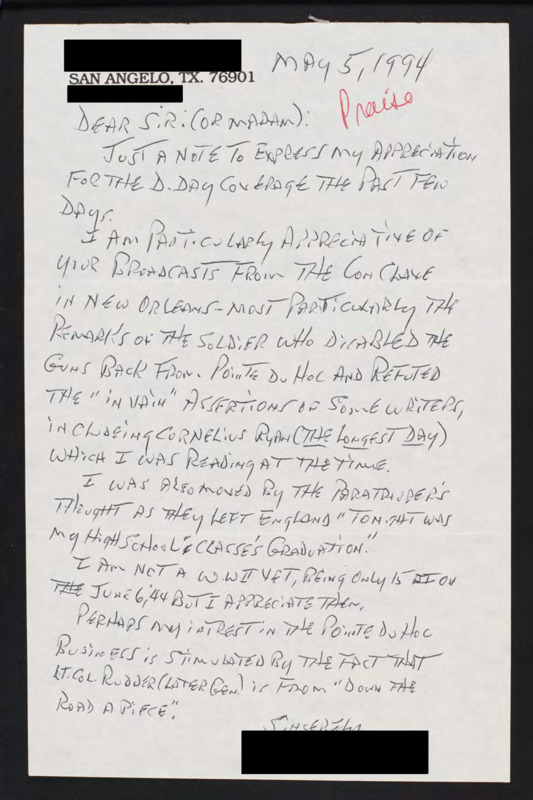 SAN ANGELO, TX. 76901
MAY 5, 1994
Praise
DEAR SIR: (OR MADAM):
JUST A NOTE TO EXPRESS MY APPRECIATION
FOR THE D. DAY COVERAGE THE PAST FEW
DAYS.
I AM PARTICULARLY APPRECIATIVE OF
YOUR BROADCASTS FROM THE CONCLAVE
IN NEW ORLEANS - MOST PARTICULARLY THE
REMARKS OF THE SOLDIER WHO DISABLED THE
GUNS BACK FROM POINTE DU HOC AND REFUTED
THE "IN VAIN" ASSERTIONS OF SOME WRITERS,
INCLUDEING CORNELIUS RYAN (THE LONGEST DAY)
WHICH I WAS READING AT THE TIME.
I WAS ALSO MOVED BY THE PARATROOPER'S
THOUGHT AS THEY LEFT ENGLAND "TONIGHT WAS
MY HIGH SCHOOL'S CLASSE'S GRADUATION."
I AM NOT A W.W.II VET, BEING ONLY 15 ON
THE JUNE 6, 44 BUT I APPRECIATE THEM.
PERHAPS MY INTREST IN THE POINTE DU HOC
BUSINESS IS STIMULATED BY THE FACT THAT
LT. COL. RUDDER (LATER GEN.) IS FROM "DOWN THE
ROAD A PIECE".
SINCERELY